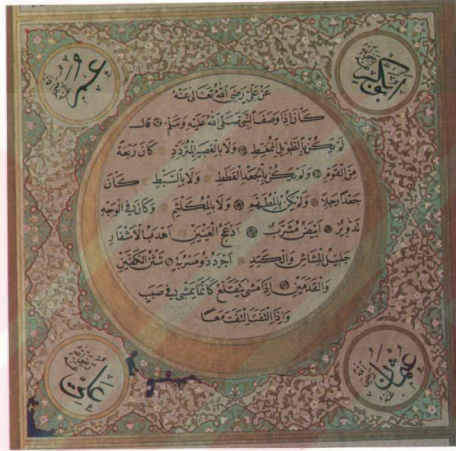 عمر
ابي بكر
عن علي رضي الله تعالى عنه
كان اذا وصف النبي صلى الله عليه وسلم قال
لم يكن بالطويل الممغط ولا بالقصير المتردد كان ربعة
من القوم ولم يكن بالجعد القطط ولا بالسبط كان
جعدا رجلا ولم يكن بالمطهم ولا بالمكلثم وكان في الوجه
تدوير ابيض مشرب ادعج العينين اهدب الاشفار
جليل المشاش والكتد اجرد ذو مسربة شثن الكفين
والقدمين اذا مشى يتقلع كانما يمشي في صبب
واذا التفت التفت معا
علي
عثمان